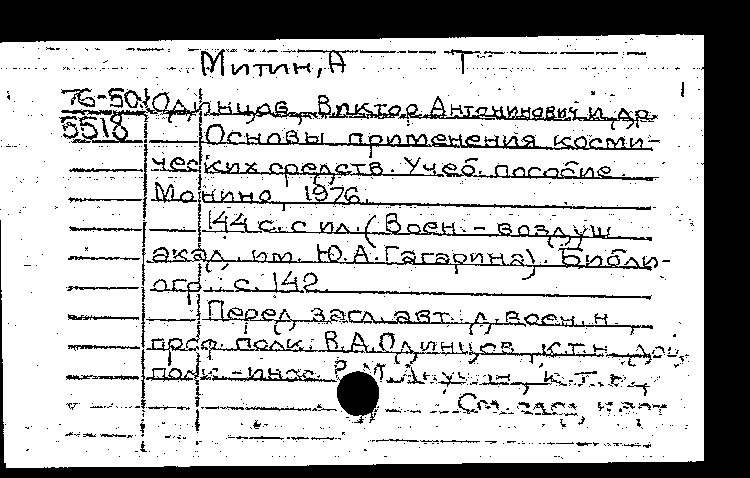 Митин, А
76-50
5518
Одинцов, Виктор Антонинович и др.
Основы применения косми-
ческих средств. Учеб. пособие.
Монино, 1976.
144 с. с ил. (Воен.-воздуш.
акад. им. Ю.А.Гагарина). Библи-
огр.: с. 142.
Перед загл. авт.: д. воен. н.,
проф. полк. В.А.Одинцов, к.т.н., доц.
полк.-инж. к.т.н.,
См. след. карт